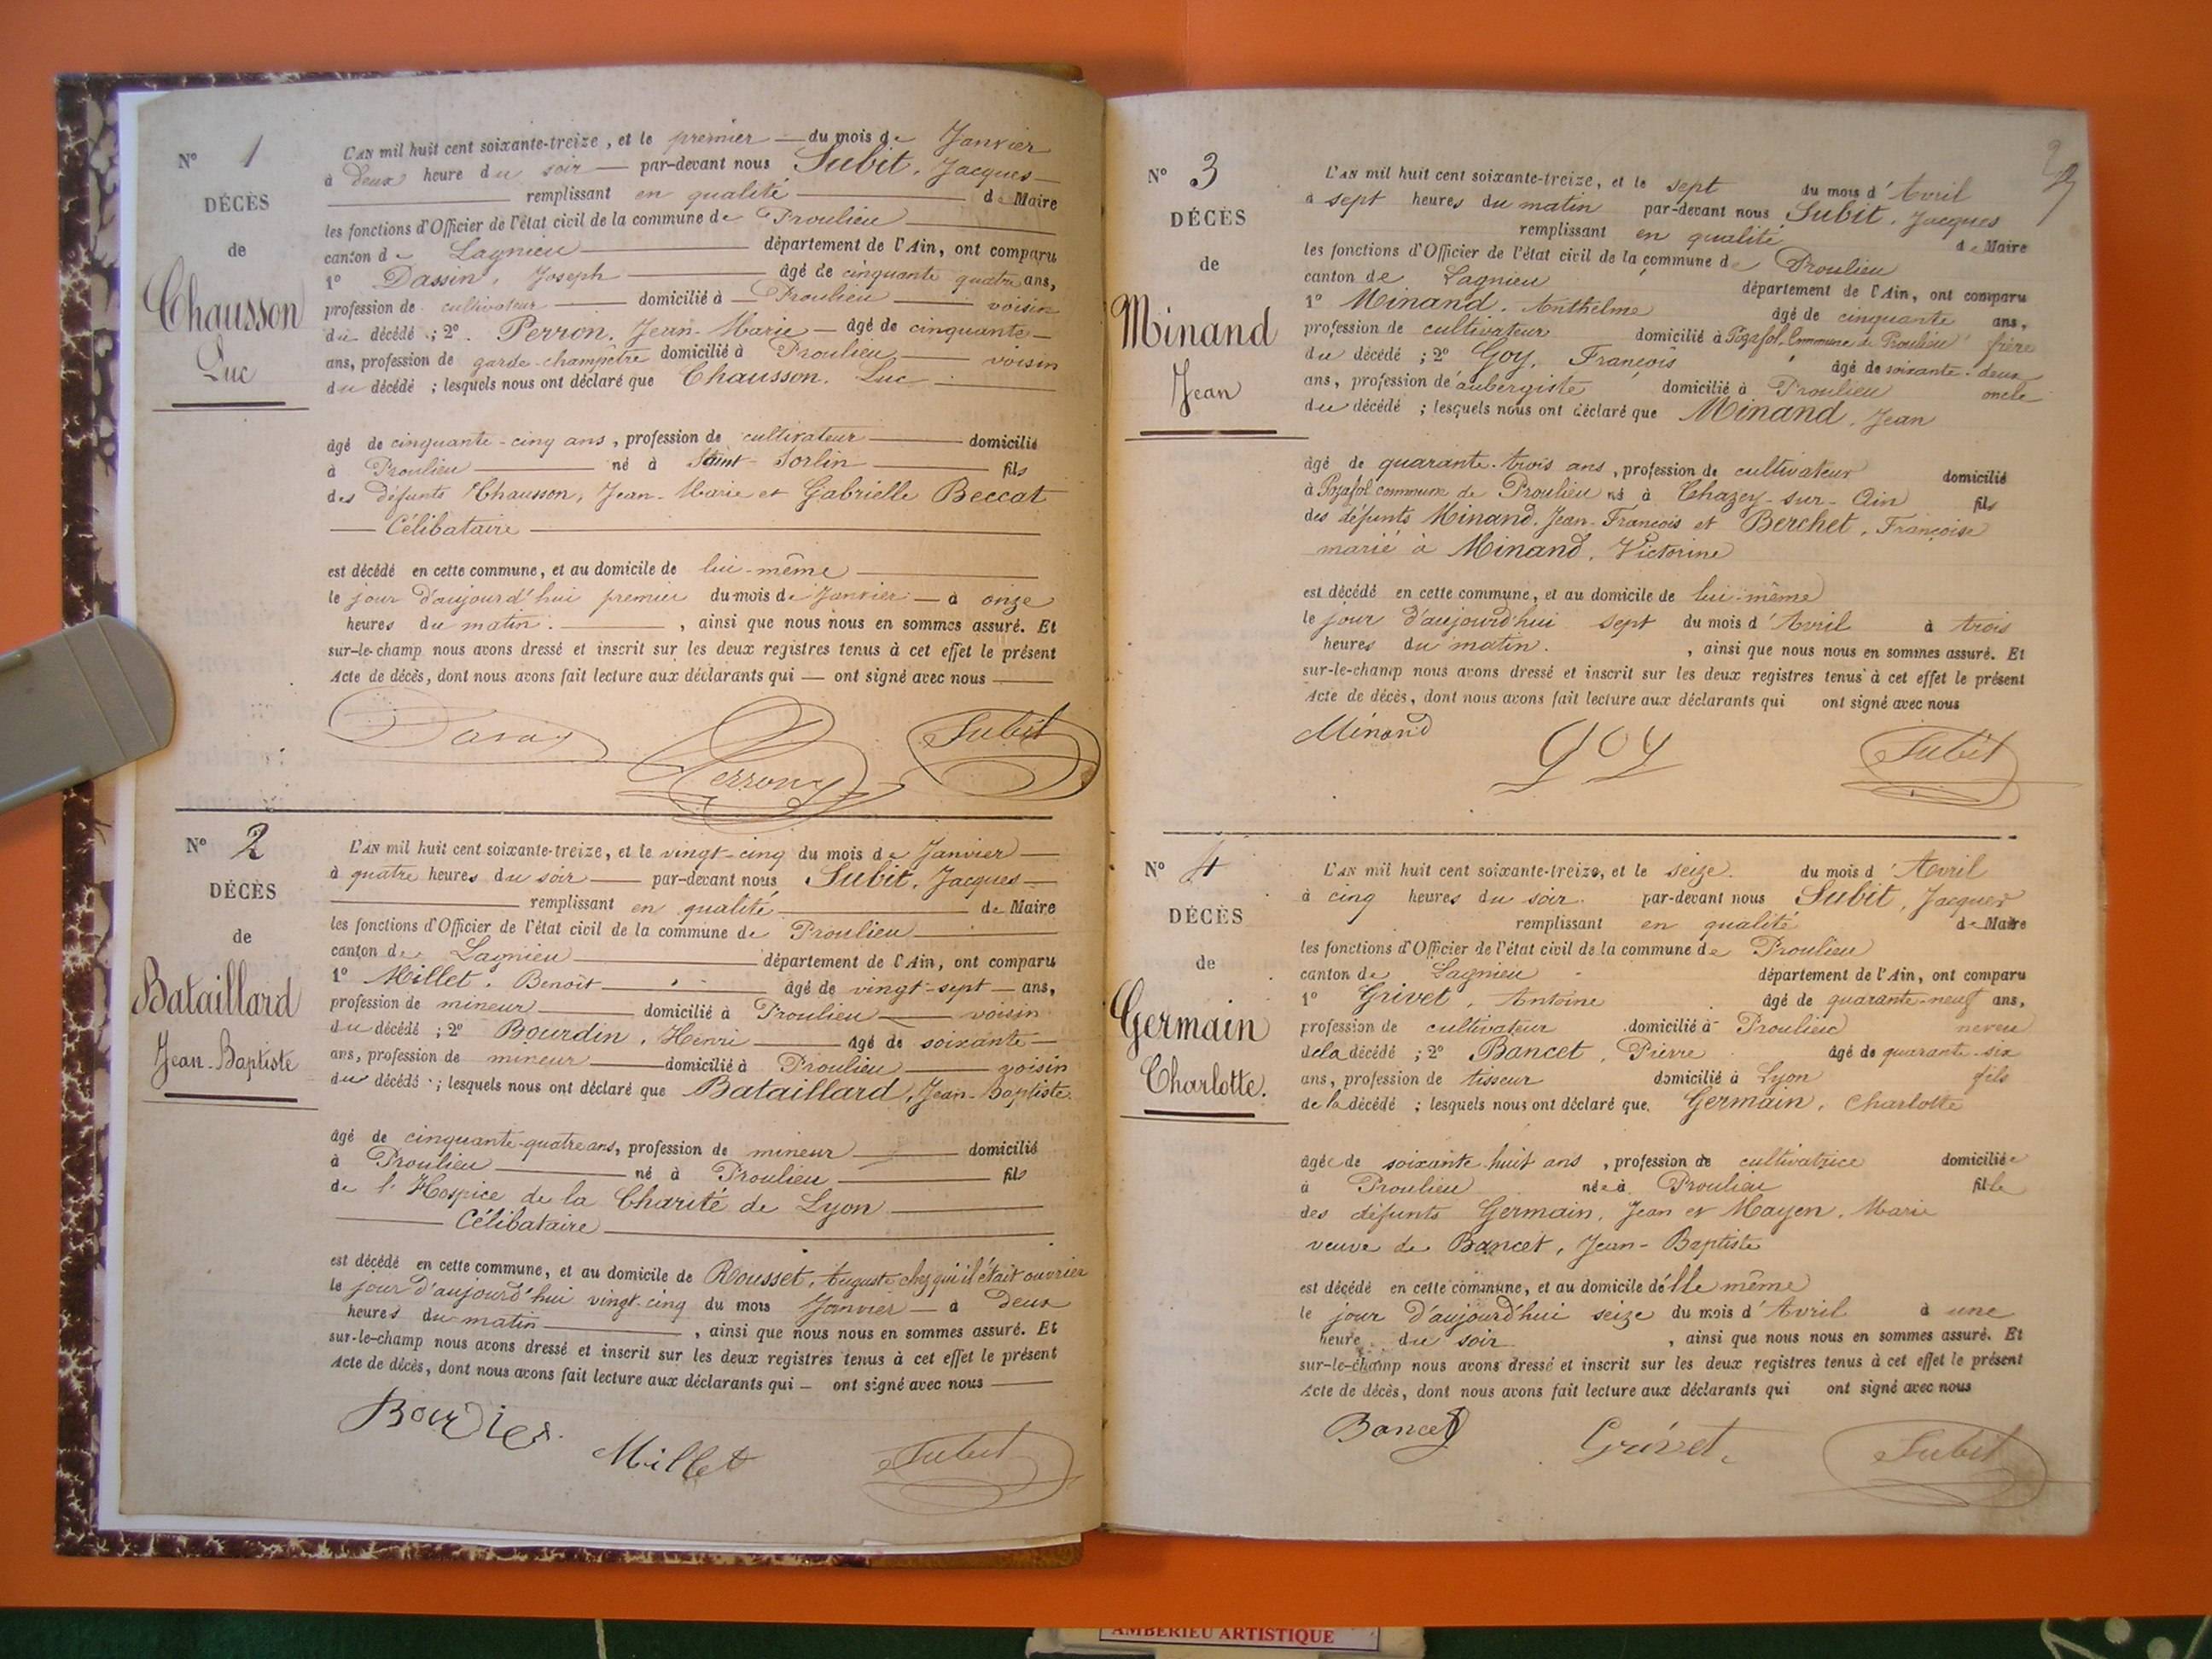 N° 1
DÉCÈS
de
Chausson
Luc
L'AN mil huit cent soixante-treize, et le premier du mois de Janvier
à deux heure du soir par-devant nous Subit, Jacques
remplissant en qualité de Maire
les fonctions d'Officier de l'état civil de la commune de Proulieu
canton de Lagnieu département de l'Ain, ont comparu
1° Dassin, Joseph âgé de cinquante quatre ans,
profession de cultivateur domicilié à Proulieu voisin
du décédé ; 2° Perron, Jean-Marie âgé de cinquante
ans, profession de garde-champêtre domicilié à Proulieu voisin
du décédé ; lesquels nous ont déclaré que Chausson, Luc
âgé de cinquante-cinq ans, profession de cultivateur domicilié
à Proulieu né à Saint-Sorlin fils
des défunts Chausson, Jean-Marie et Gabrielle Beccat
Célibataire
est décédé en cette commune, et au domicile de lui-même
le jour d'aujourd'hui premier du mois de Janvier à onze
heures du matin , ainsi que nous nous en sommes assuré. Et
sur-le-champ nous avons dressé et inscrit sur les deux registres tenus à cet effet le présent
Acte de décès, dont nous avons fait lecture aux déclarants qui ont signé avec nous
Perron Subit
N° 2
DÉCÈS
de
Bataillard
Jean-Baptiste
L'AN mil huit cent soixante-treize, et le vingt-cinq du mois de Janvier
à quatre heures du soir par-devant nous Subit, Jacques
remplissant en qualité de Maire
les fonctions d'Officier de l'état civil de la commune de Proulieu
canton de Lagnieu département de l'Ain, ont comparu
1° Millet, Benoît âgé de vingt-sept ans,
profession de mineur domicilié à Proulieu voisin
du décédé ; 2° Bourdin, Henri âgé de soixante
ans, profession de mineur domicilié à Proulieu voisin
du décédé ; lesquels nous ont déclaré que Bataillard, Jean-Baptiste
âgé de cinquante-quatre ans, profession de mineur domicilié
à Proulieu né à Proulieu fils
de l'Hospice de la Charité de Lyon
Célibataire
est décédé en cette commune, et au domicile de Rousset, Auguste chez qui il était ouvrier
le jour d'aujourd'hui vingt-cinq du mois Janvier à deux
heures du matin , ainsi que nous nous en sommes assuré. Et
sur-le-champ nous avons dressé et inscrit sur les deux registres tenus à cet effet le présent
Acte de décès, dont nous avons fait lecture aux déclarants qui ont signé avec nous
Millet Subit
N° 3
DÉCÈS
de
Minand
Jean
L'AN mil huit cent soixante-treize, et le sept du mois d'Avril
à sept heures du matin par-devant nous Subit, Jacques
remplissant en qualité de Maire
les fonctions d'Officier de l'état civil de la commune de Proulieu
canton de Lagnieu département de l'Ain, ont comparu
1° Minand, Anthelme âgé de cinquante ans,
profession de cultivateur domicilié à Pozafol, Commune de Proulieu frère
du décédé ; 2° Goy, François âgé de soixante-deux
ans, profession de aubergiste domicilié à Proulieu oncle
du décédé ; lesquels nous ont déclaré que Minand, Jean
âgé de quarante-trois ans, profession de cultivateur domicilié
à Pozafol commune de Proulieu né à Chazey-sur-Ain fils
des défunts Minand, Jean-François et Berchet, Françoise
marié à Minand, Victorine
est décédé en cette commune, et au domicile de lui-même
le jour d'aujourd'hui sept du mois d'Avril à trois
heures du matin. , ainsi que nous nous en sommes assuré. Et
sur-le-champ nous avons dressé et inscrit sur les deux registres tenus à cet effet le présent
Acte de décès, dont nous avons fait lecture aux déclarants qui ont signé avec nous
Minand GOY Subit
N° 4
DÉCÈS
de
Germain
Charlotte.
L'AN mil huit cent soixante-treize, et le seize du mois d'Avril
à cinq heures du soir par-devant nous Subit, Jacques
remplissant en qualité de Maire
les fonctions d'Officier de l'état civil de la commune de Proulieu
canton de Lagnieu département de l'Ain, ont comparu
1° Grivet, Antoine âgé de quarante-neuf ans,
profession de cultivateur domicilié à Proulieu neveu
de la décédé ; 2° Bancet, Pierre âgé de quarante-six
ans, profession de tisseur domicilié à Lyon fils
de la décédé ; lesquels nous ont déclaré que Germain, Charlotte
âgée de soixante huit ans, profession de cultivatrice domiciliée
à Proulieu née à Proulieu fille
des défunts Germain, Jean et Mayen, Marie
veuve de Bancet, Jean-Baptiste
est décédé en cette commune, et au domicile d'elle même
le jour d'aujourd'hui seize du mois d'Avril à une
heure du soir , ainsi que nous nous en sommes assuré. Et
sur-le-champ nous avons dressé et inscrit sur les deux registres tenus à cet effet le présent
Acte de décès, dont nous avons fait lecture aux déclarants qui ont signé avec nous
Bancet Grivet Subit
AMBÉRIEU ARTISTIQUE